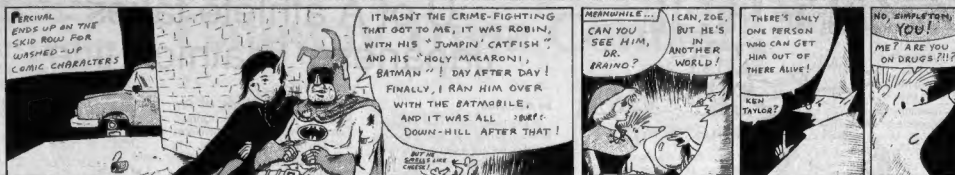 PERCIVAL
ENDS UP ON THE
SKID ROW FOR
WASHED-UP
COMIC CHARACTERS
IT WASN'T THE CRIME-FIGHTING
THAT GOT TO ME, IT WAS ROBIN,
WITH HIS "JUMPIN' CATFISH"
AND HIS "HOLY MACARONI,
BATMAN"! DAY AFTER DAY!
FINALLY, I RAN HIM OVER
WITH THE BATMOBILE,
AND IT WAS ALL :BURP:
DOWN-HILL AFTER THAT!
BUT HE
SMELLS LIKE
CHEESE!
MEANWHILE...
CAN YOU
SEE HIM,
DR.
BRAINO?
I CAN, ZOE,
BUT HE'S
IN
ANOTHER
WORLD!
THERE'S ONLY
ONE PERSON
WHO CAN GET
HIM OUT OF
THERE ALIVE!
KEN
TAYLOR?
NO, SIMPLETON,
YOU!
ME? ARE YOU
ON DRUGS?!!?